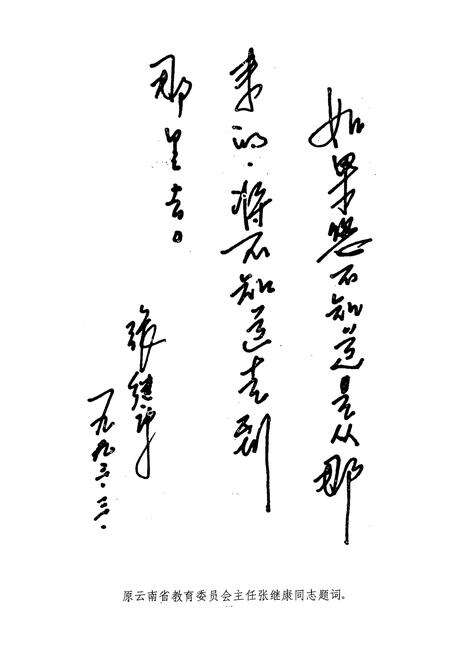 如果您不知道是从那
来的，将不知道走到
那里去。
张继康
一九九三·三·
原云南省教育委员会主任张继康同志题词。